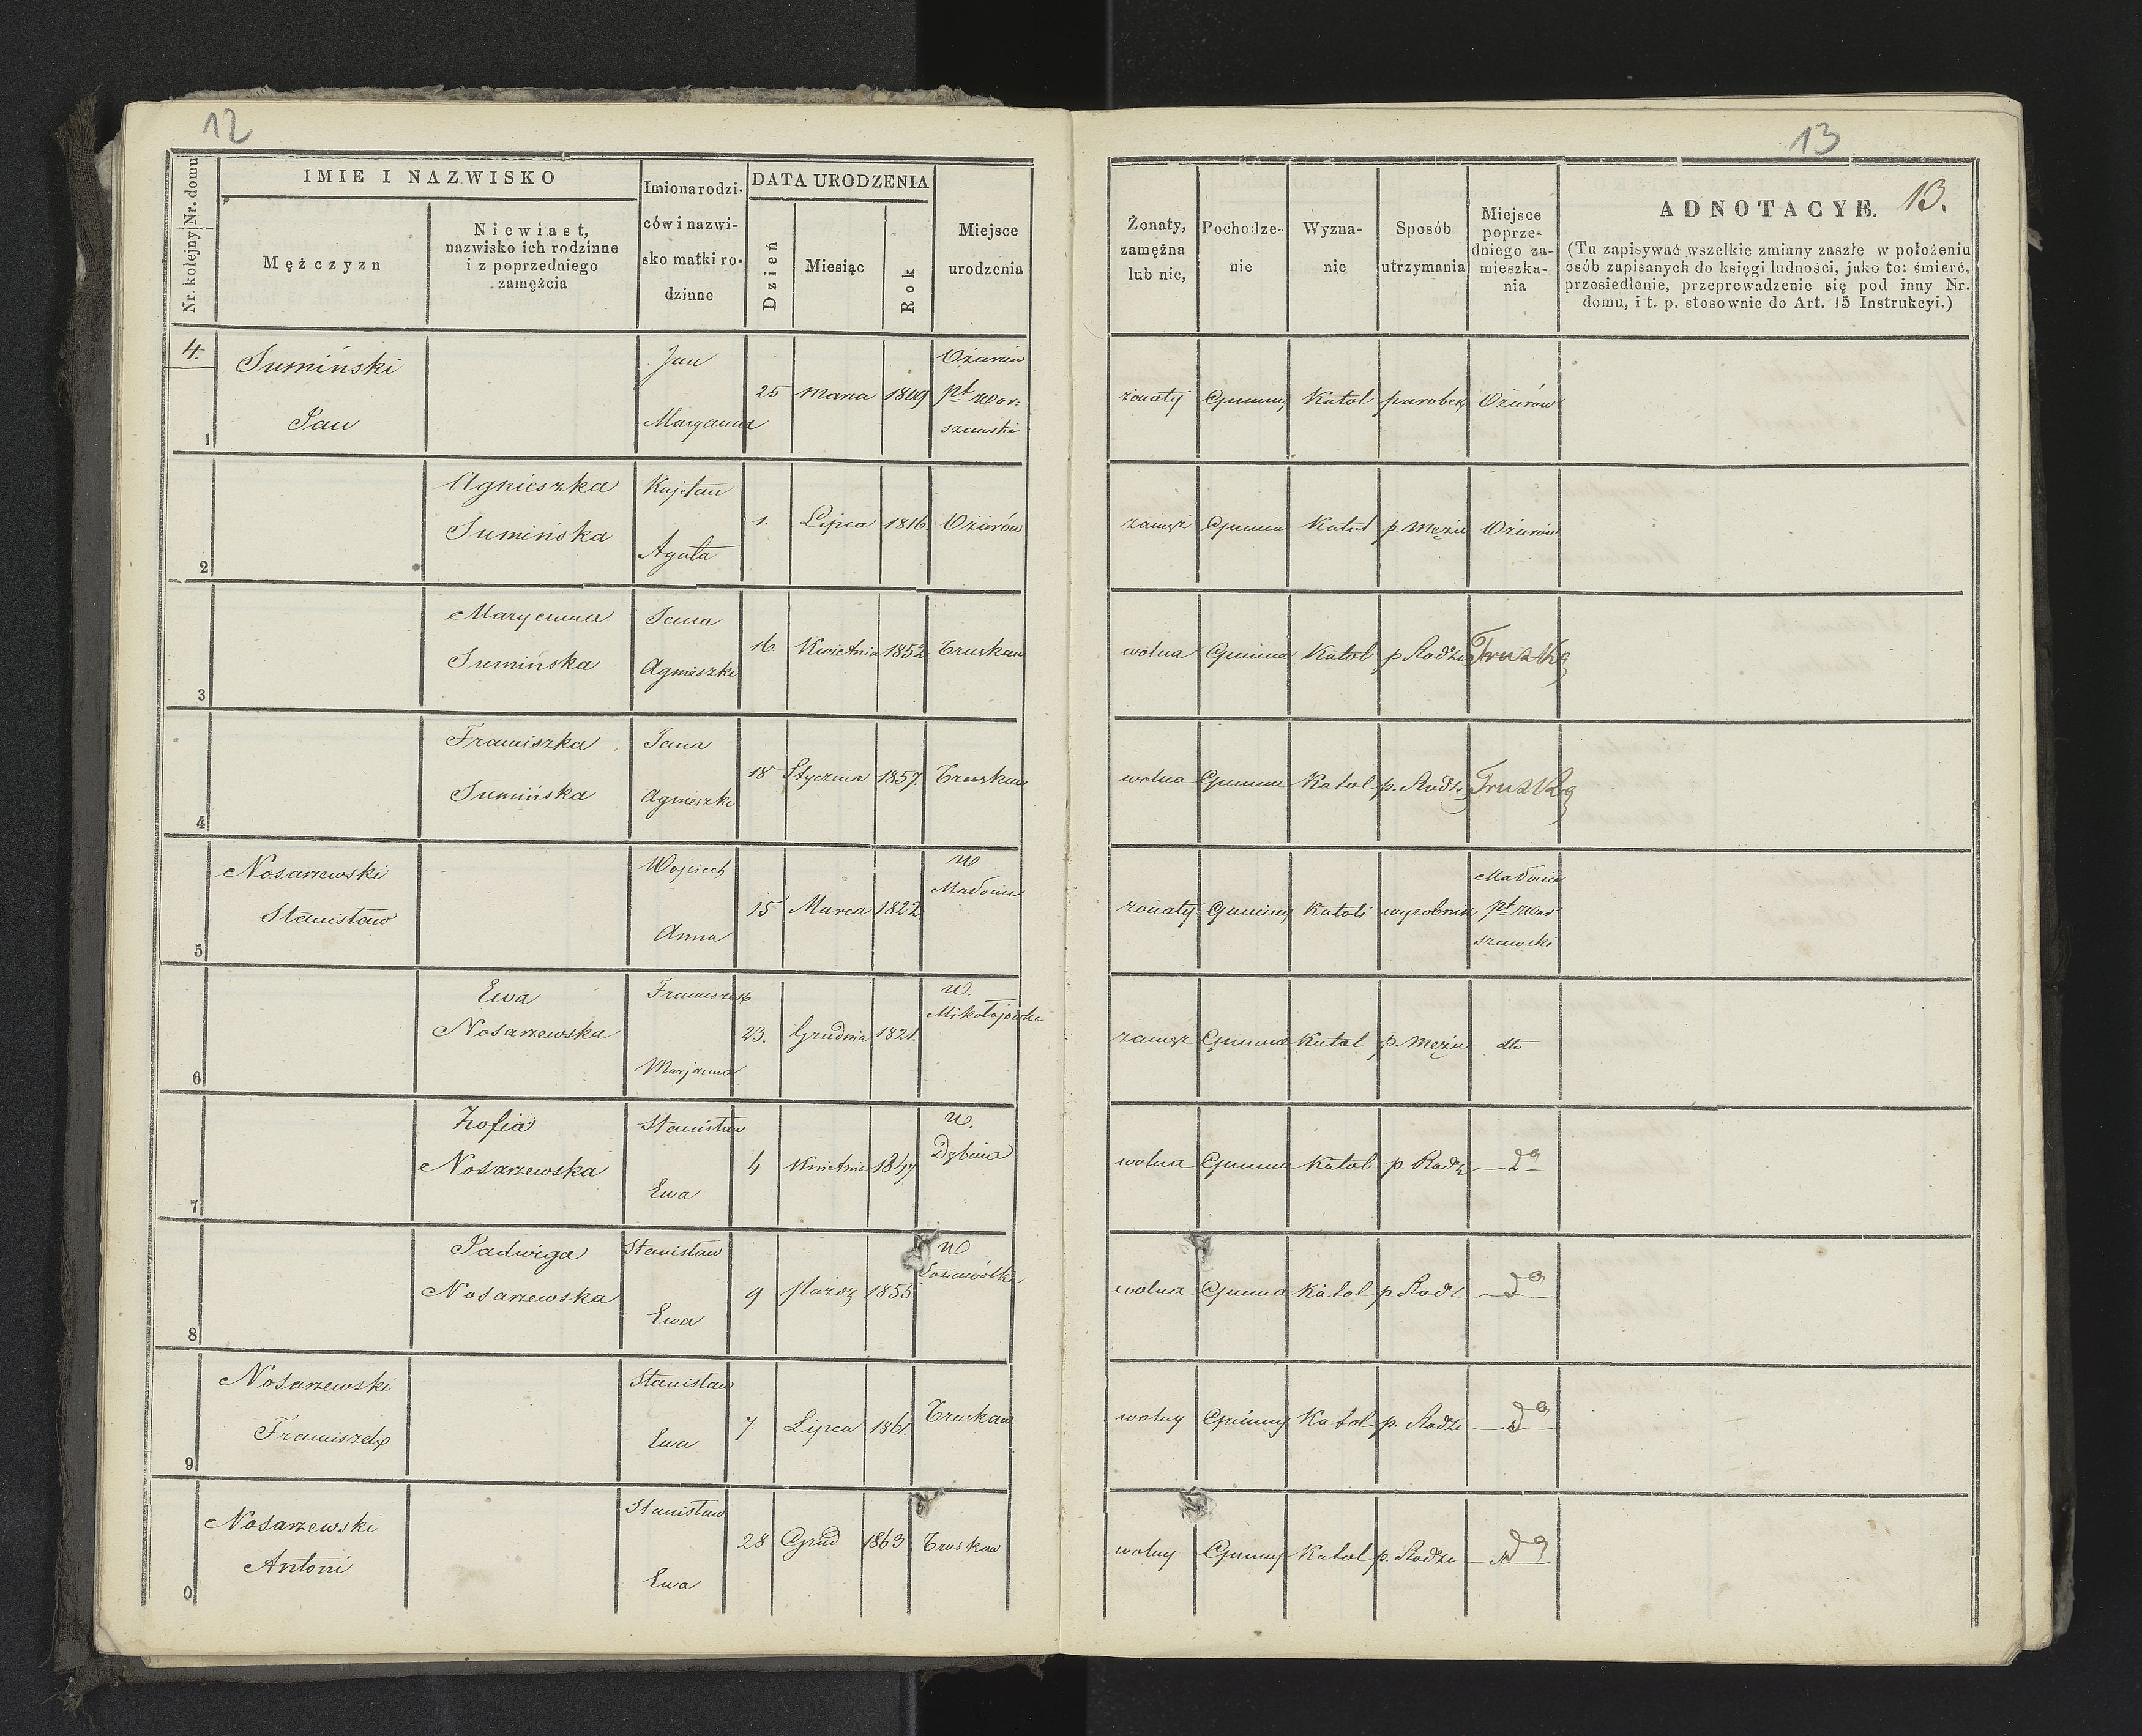 12
13
13.
Nr. kolejny Nr. domu
IMIE I NAZWISKO
Mężczyzn
Niewiast,
nazwisko ich rodzinne
i z poprzedniego
zamężcia
Imiona rodzi-
ców i nazwi-
sko matki ro-
dzinne
DATA URODZENIA
Dzień
Miesiąc
Rok
Miejsce
urodzenia
Żonaty,
zamężna
lub nie,
Pochodze-
nie
Wyzna-
nie
Sposób
utrzymania
Miejsce
poprze-
dniego za-
mieszka-
nia
ADNOTACYE.
(Tu zapisywać wszelkie zmiany zaszłe w położeniu
osób zapisanych do księgi ludności, jako to: śmierć,
przesiedlenie, przeprowadzenie się pod inny Nr.
domu, i t. p. stosownie do Art. 15 Instrukcyi.)
4.
1
Sumiński
Jan
Jan
Maryanna
25 Marca 1809
Ożarów
pt war-
szawski
żonaty Gminny Katol parobek Ożarów
2
Agnieszka
Sumińska
Kajetan
Agata
1. Lipca 1816 Ożarów
zamęż Gminna Katol p. Mężu Ożarów
3
Maryanna
Sumińska
Jana
Agnieszki
16. Kwietnia 1852 Truskaw
wolna Gminna Katol p Rodzi
4
Franciszka
Sumińska
Jana
Agnieszki
18 Stycznia 1857. Truskaw
wolna Gminna Katol p. Rodzi
5
Nosarzewski
Stanisław
Wojciech
Anna
15 Marca 1822
w
żonaty Gminny Katoli wyrobnik
pt war
szawski
6
Ewa
Nosarzewska
Franciszek
Marjanna
23. Grudnia 1821.
w.
zamęż Gminna Katol p. Mężu dto
7
Zofia
Nosarzewska
Stanisław
Ewa
4 Kwietnia 1847
w.
Dębina
wolna Gminna Katol p. Rodz do
8
Jadwiga
Nosarzewska
Stanisław
Ewa
9 1855
w
wolna Gminna Katol p. Rodz do
9
Nosarzewski
Franciszek
Stanisław
Ewa
7. Lipca 1861. Truskaw
wolny Gminny Katol p. Rodzi do
0
Nosarzewski
Antoni
Stanisław
Ewa
28 Grud 1863 Truskaw
wolny Gminny Katol p. Rodzi do